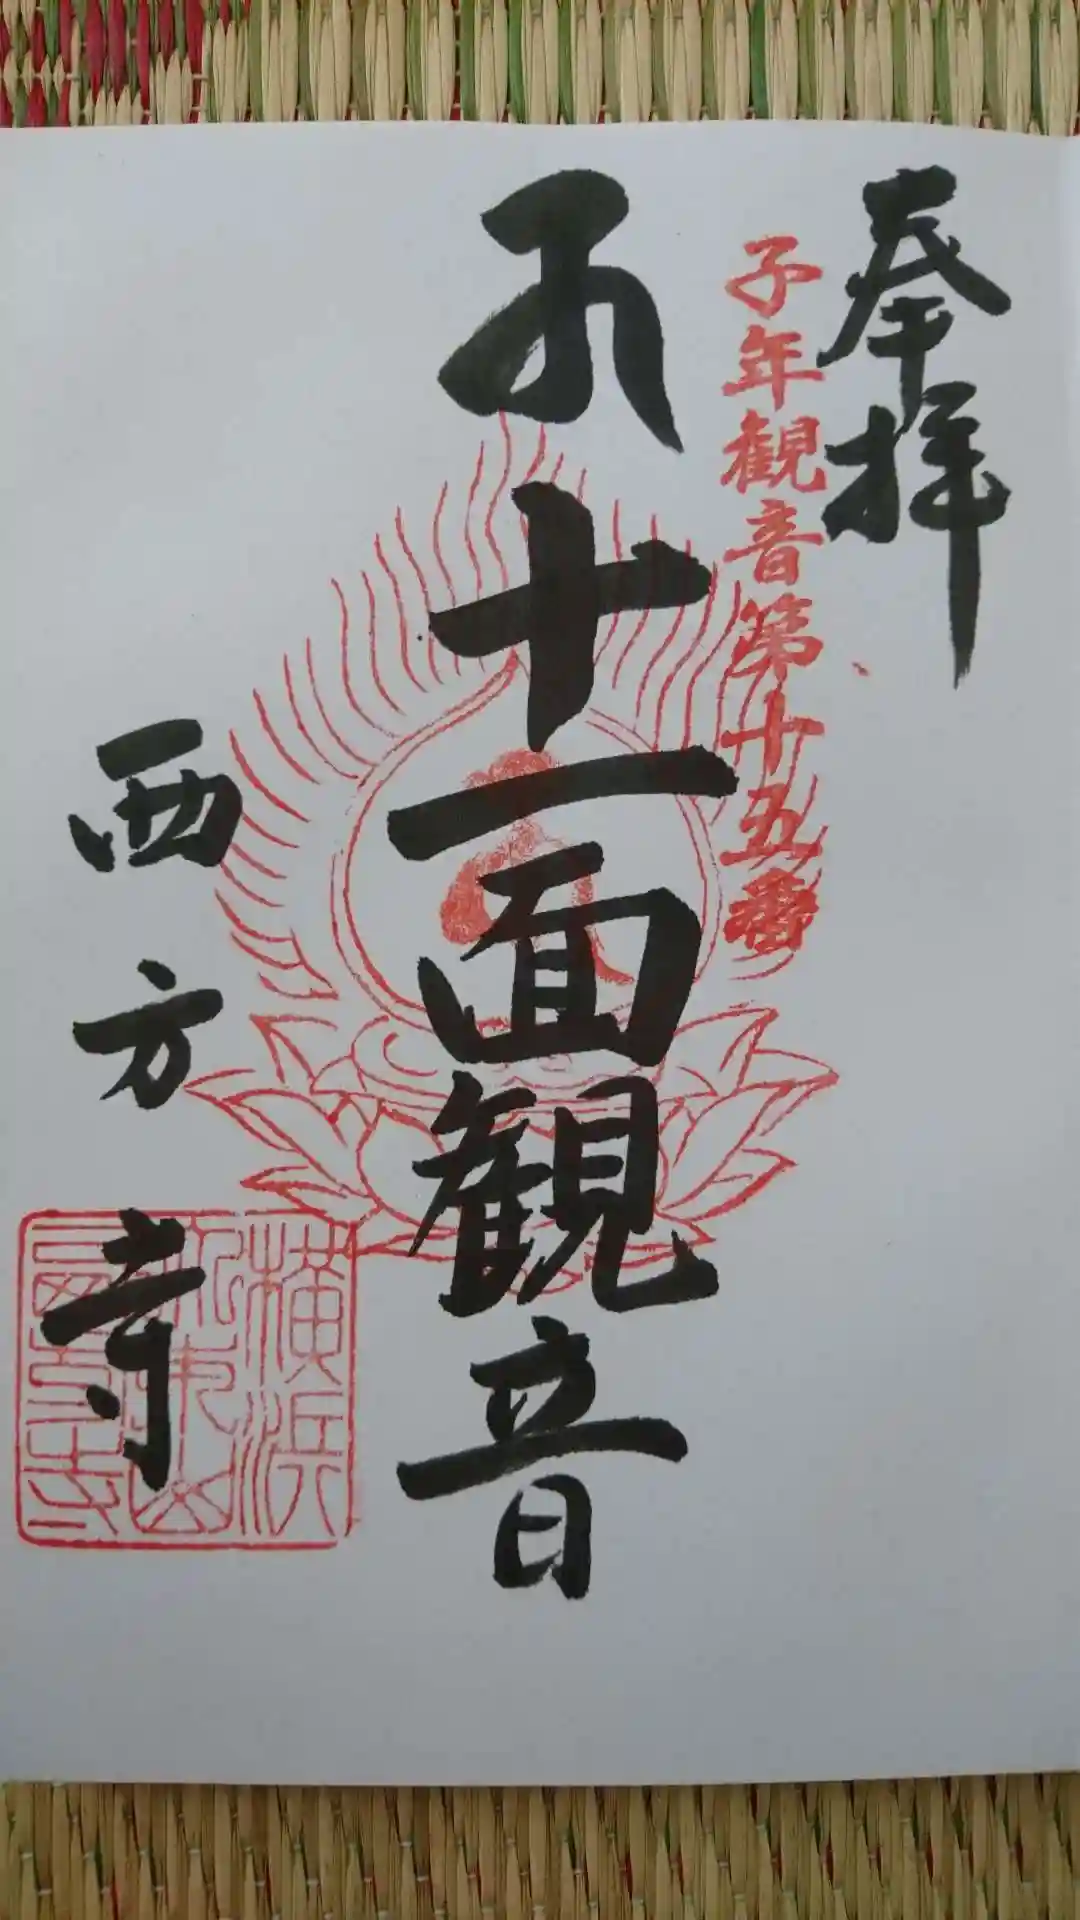 奉拝
子年観音第十五番
十一面観音
西方寺
横浜